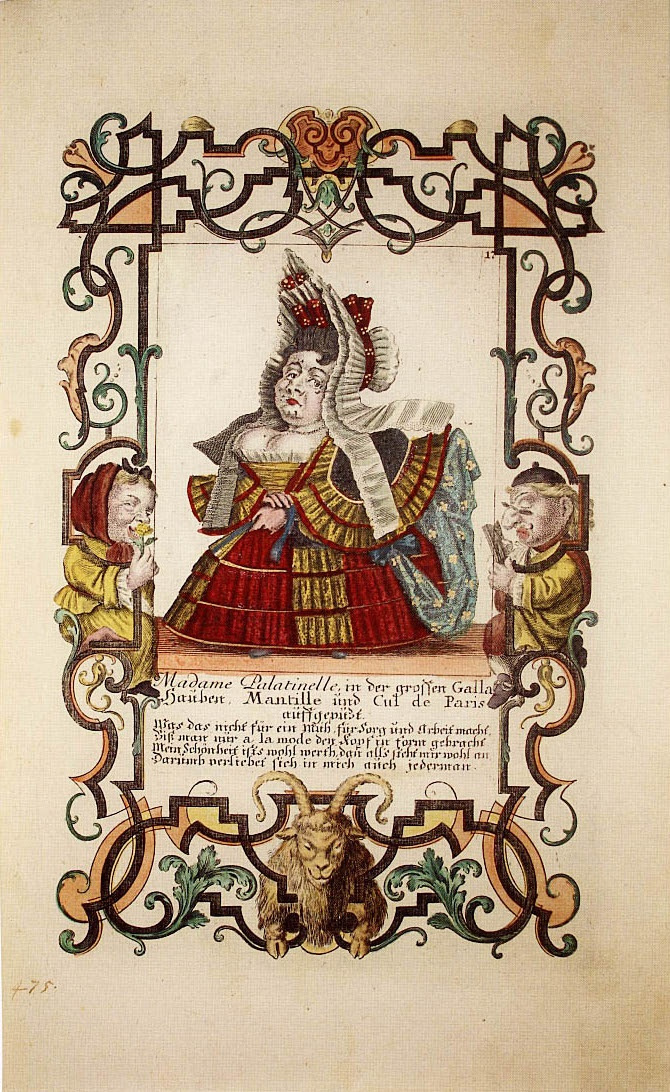 17
Madame Palatinelle, in der grossen Galla
Hauben, Mantille und Cul de Paris
auffgeputzt.
Was das nicht für ein Müh, für Sorg und Arbeit macht,
Biß man mir a la mode den Kopf in form gebracht
Mein Schönheit ists wohl werth, dañ alls steht mir wohl an
Darumb verliebet sich in mich auch jederman.
+75.